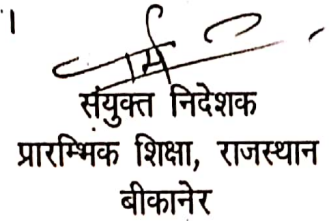 ।
संयुक्त निदेशक
प्रारम्भिक शिक्षा, राजस्थान
बीकानेर